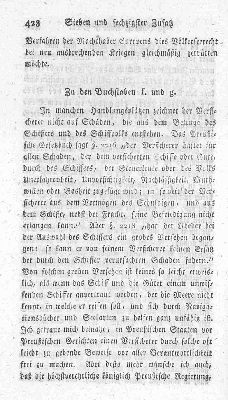 428 Sieben und sechzigster Zusatz
Verfahren der Mechlhaber Corrents dies Völkerrecht
bey neu ausbrechenden Kriegen gleichmäßig zerrütten
möchte.
Zu den Buchstaben f. und g.
In manchen Handlungsplätzen zeichnet der Versi-
cherer nicht auf Schäden, die aus dem Betruge des
Schiffers und des Schiffvolks entstehen. Das Preußi-
sche Gesetzbuch sagt §. "der Versicherer haftet für
den Schaden, der dem versicherten Schiffe oder Gute
durch des Schiffers, der Steuerleute oder des Volks
Unvorsichtigkeit, Nachläßigkeit, Muth-
willen oder Bosheit zugefügt wird; in sofern der Versi-
cherer aus dem Vermögen des Schuldigen, und aus
dem Schiffe, nebst der Fracht, seine Befriedigung nicht
erlangen kann." Aber §. "hat der Rheder bey
der Auswahl des Schiffers ein grobes Versehen began-
gen; so kann er von seinem Versicherer keinen Ersatz
der durch den Schiffer verursachten Schäden fodern."
Von solchem groben Versehen ist keines so leicht erweis-
lich, als wenn das Schiff und die Güter einem unwis-
senden Schiffer anvertraut werden, der die Meere nicht
kennt, in welche er reisen soll, und sich durch Naviga-
tionsbücher und Seekarten zu helfen ganz unfähig ist.
Ich getraue mich beinahe, in Preußischen Staaten vor
Preußischen Gerichten einen Versicherer durch solche oft
leicht zu gebende Beweise vor aller Verantwortlichkeit
frei zu machen. Aber dieß weiß wünsche ich auch,
daß die höchstverehrliche königlich Preußische Regierung,